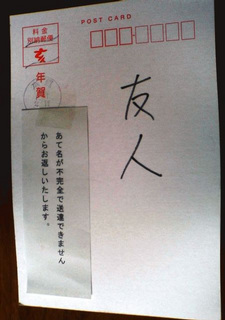 POST CARD
料金
別納郵便
亥
年賀
友人
あて名が不完全で送達できません
からお返しいたします。